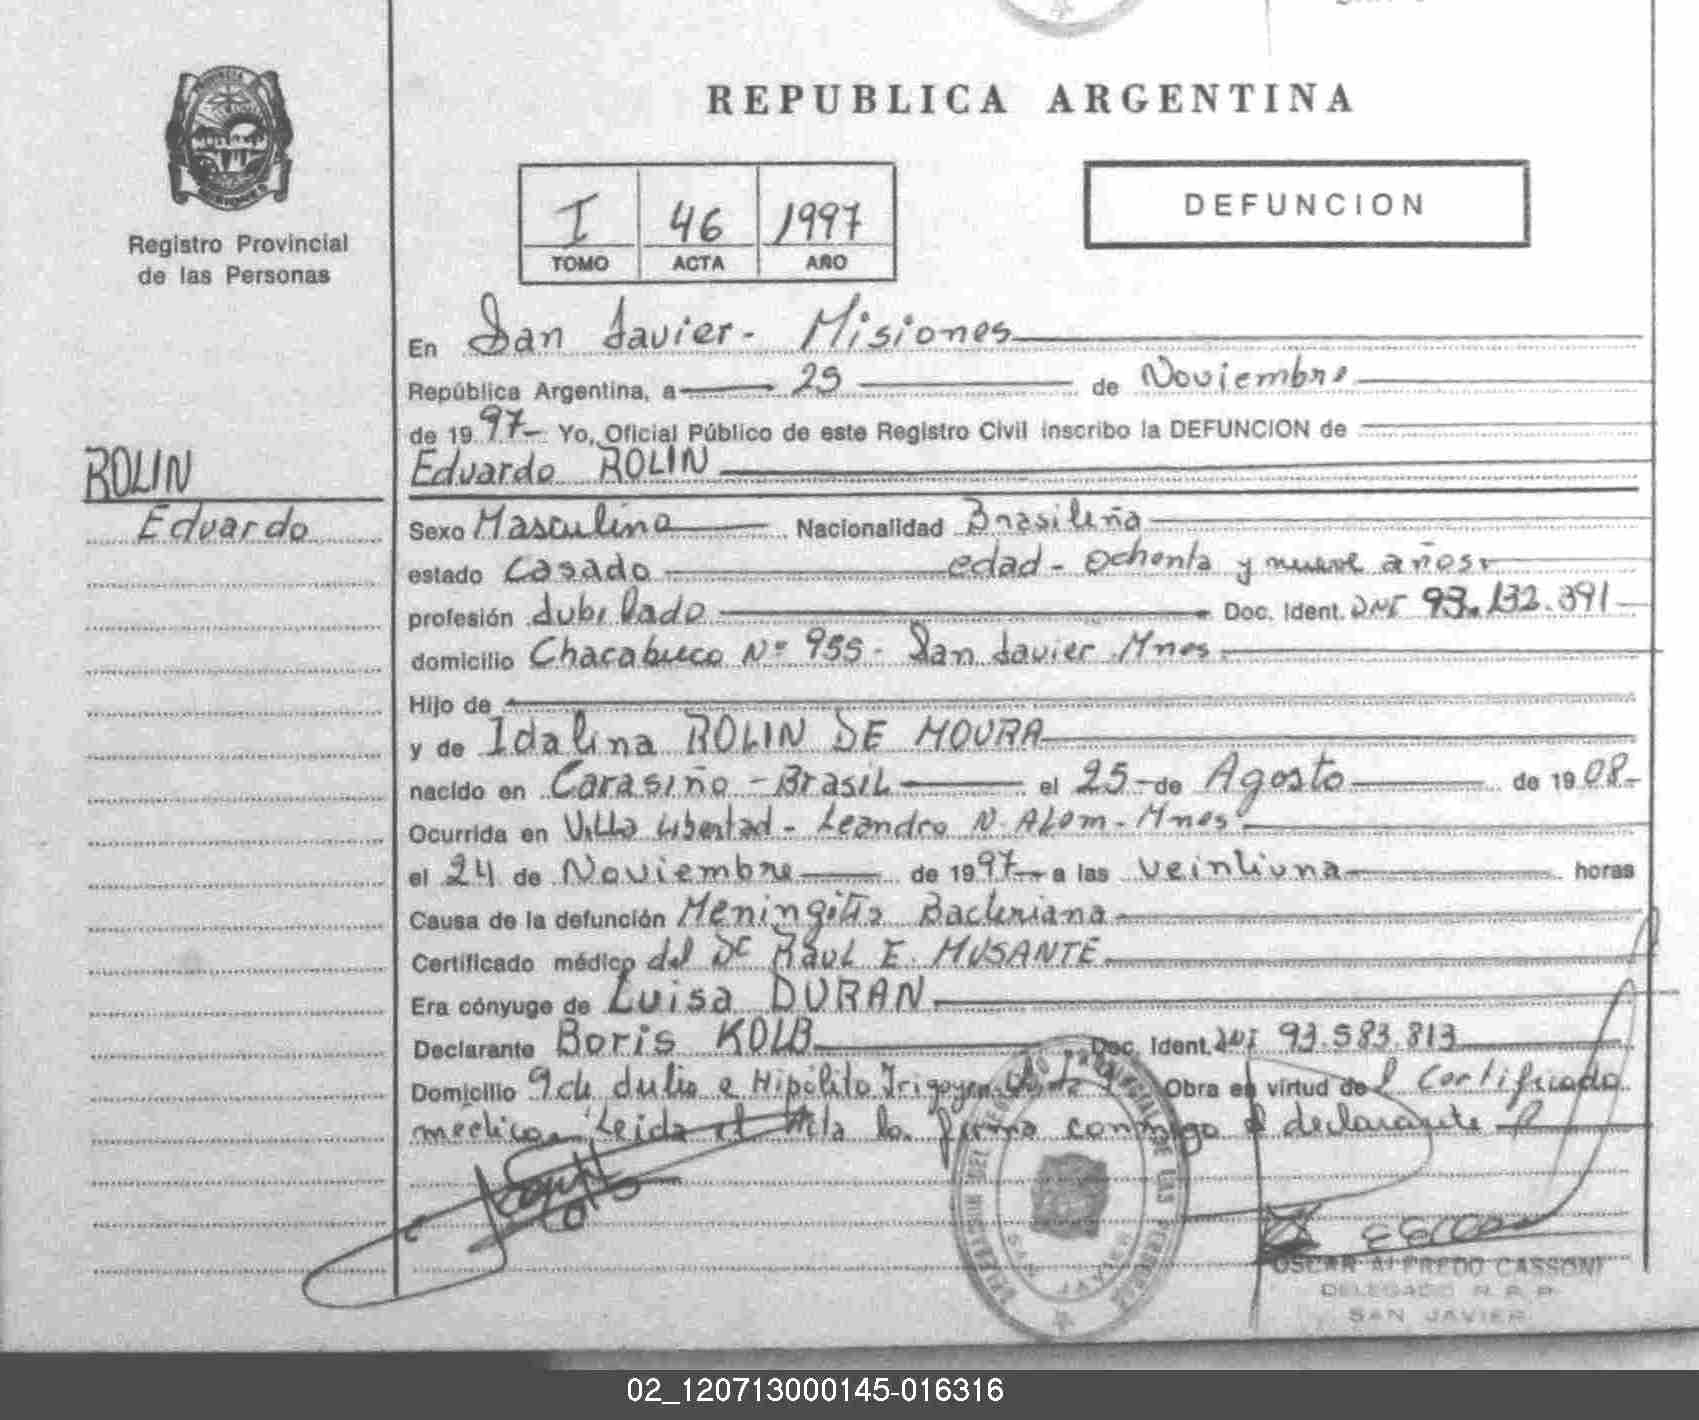 REPUBLICA ARGENTINA
Registro Provincial
de las Personas
I 46 1997
TOMO ACTA AÑO
DEFUNCION
En San Javier - Misiones
República Argentina, a 25 de Noviembre
de 1997 - Yo, Oficial Público de este Registro Civil inscribo la DEFUNCION de
ROLIN
Eduardo
Eduardo ROLIN
Sexo Masculino Nacionalidad Brasileña
estado Casado edad - ochenta y nueve años
profesión Jubilado Doc. Ident. DNI 93.132.391
domicilio Chacabuco Nº 955 - San Javier Mnes
Hijo de
y de Idalina ROLIN DE MOURA
nacido en Carasiño - Brasil el 25 - de Agosto de 1908 -
Ocurrida en Villa Libertad - Leandro N. Alem - Mnes
el 24 de Noviembre de 1997 a las veintiuna horas
Causa de la defunción Meningitis Bacteriana
Certificado médico del Dr Raul E. MUSANTE
Era cónyuge de Luisa DURAN
Declarante Boris KOLB Doc. Ident. DNI 93.583.813
Domicilio 9 de Julio e Hipólito Irigoyen Obra en virtud del Certificado
médico. Leida el Acta la firma conmigo el declarante
SAN JAVIER
OSCAR ALFREDO CASSONI
DELEGADO R. P. P.
SAN JAVIER
02_120713000145-016316